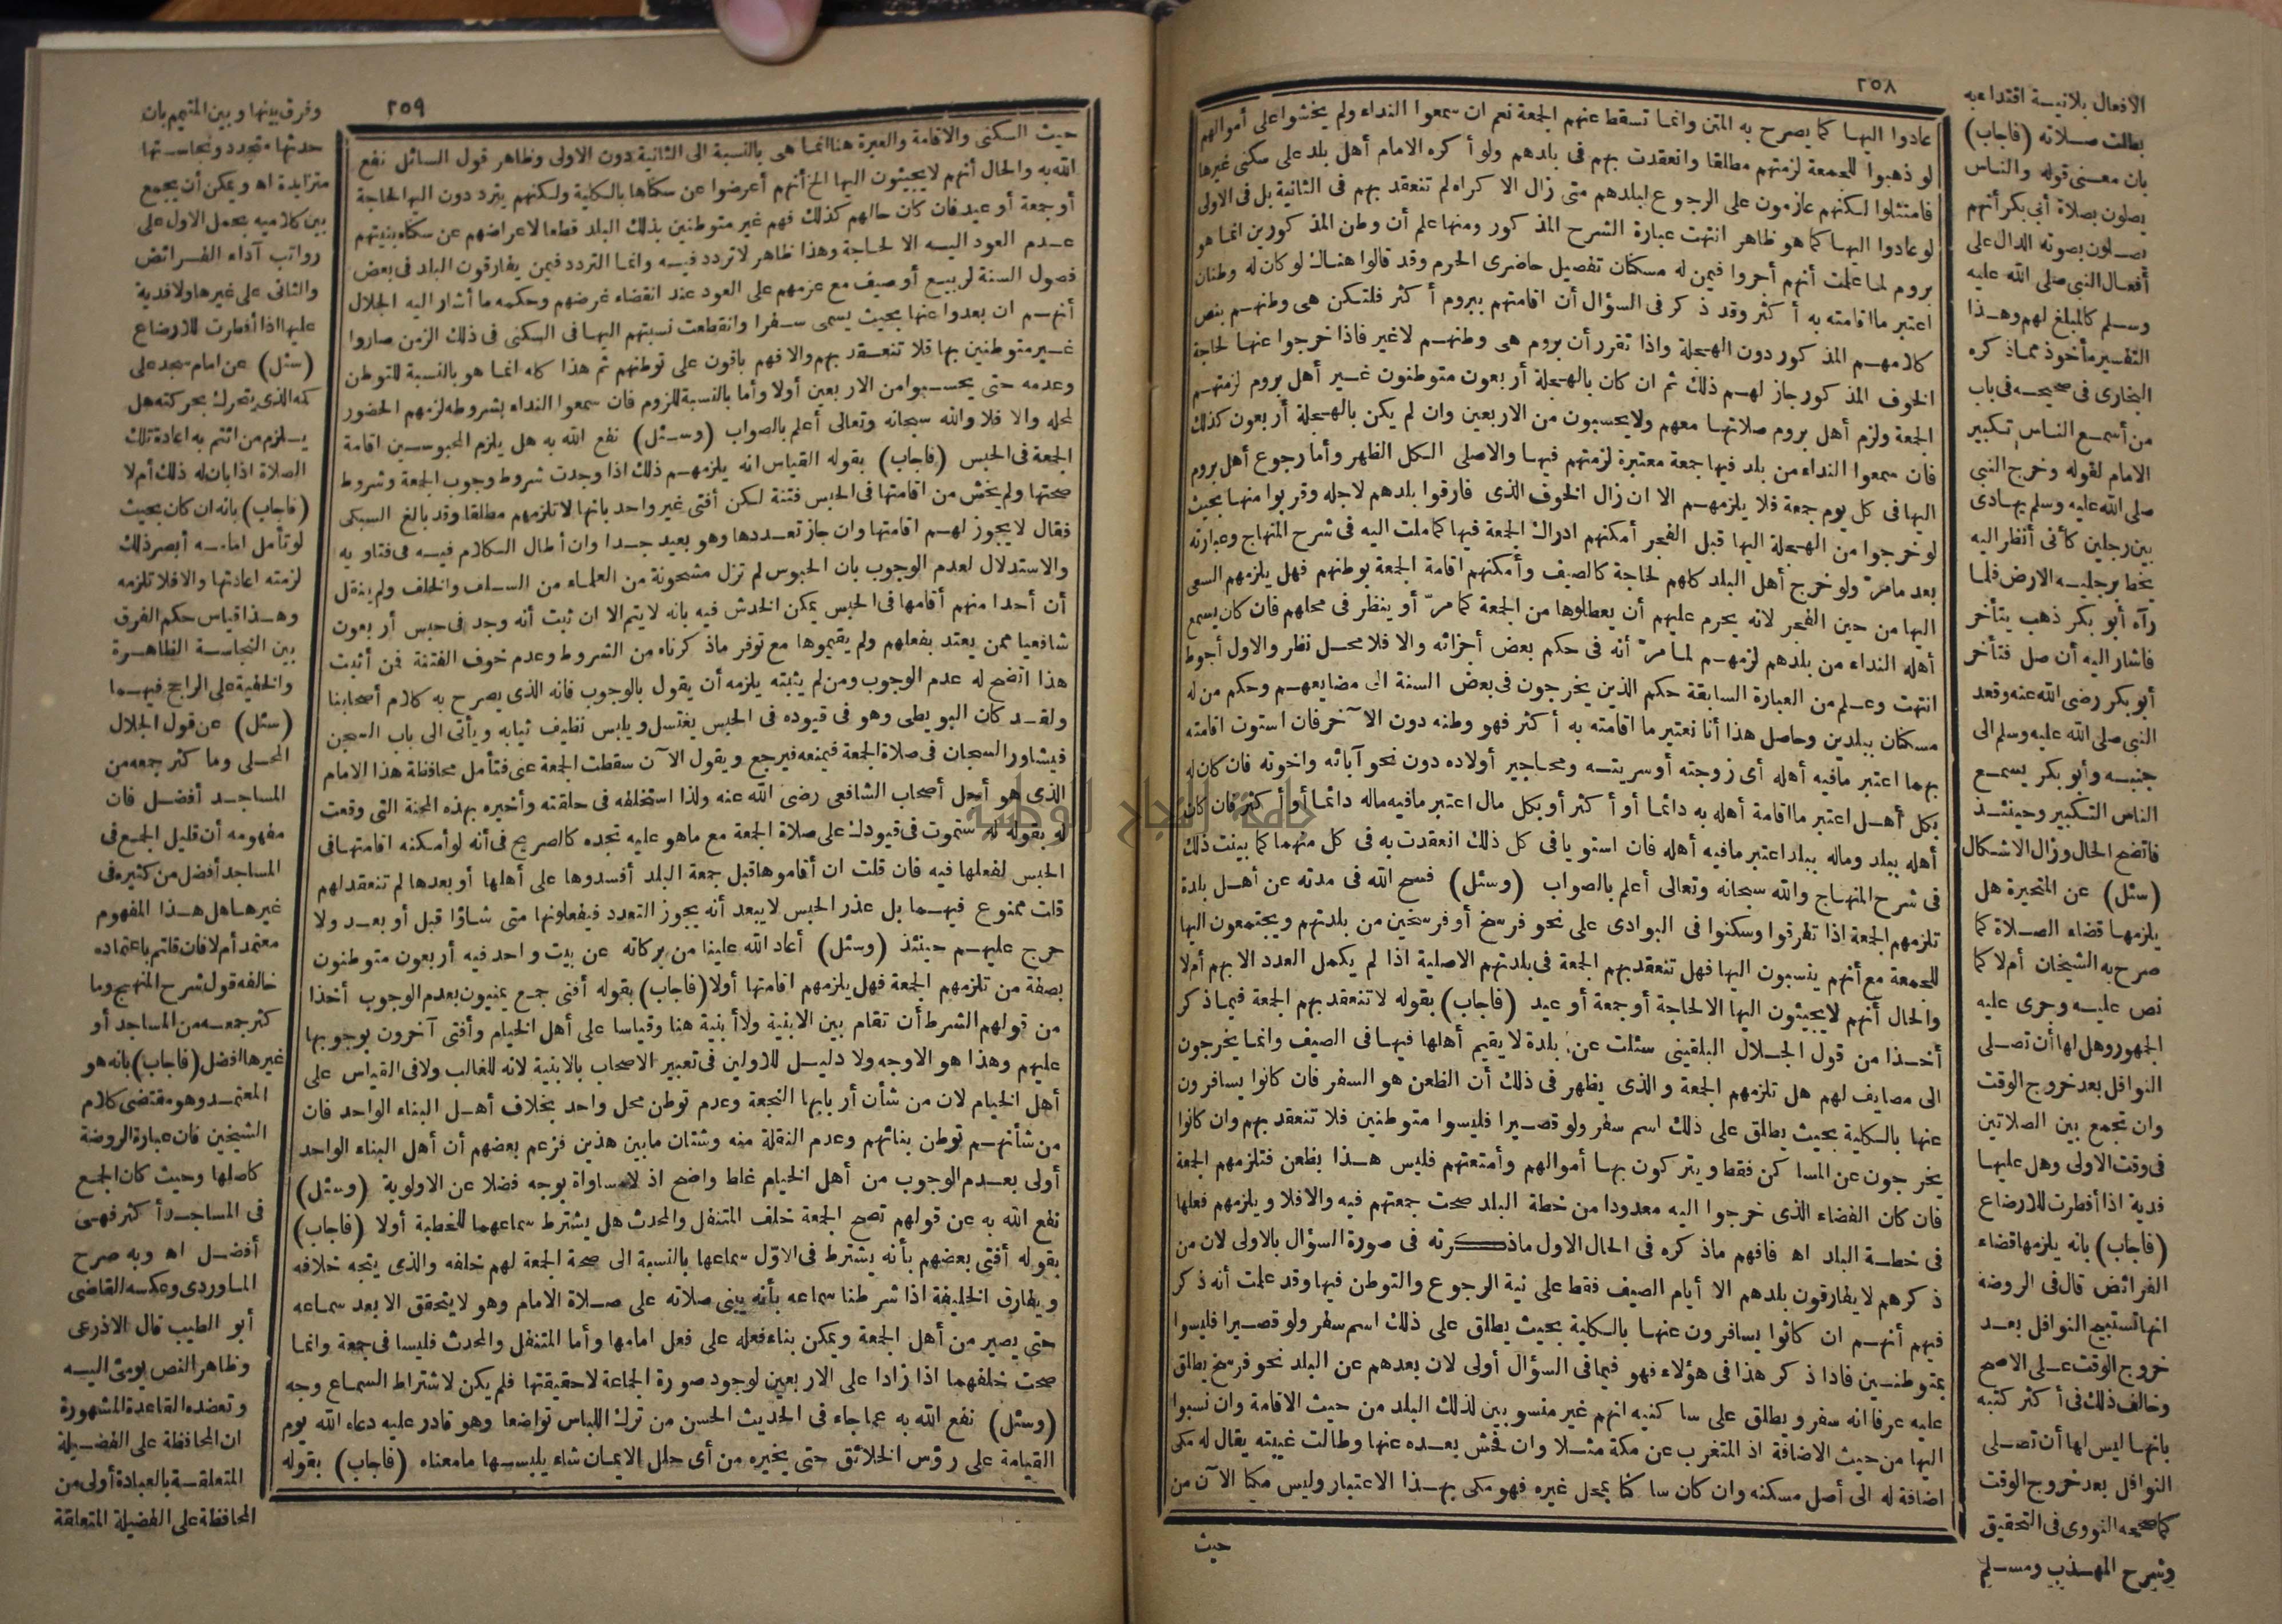 ٢٥٨
عادوا اليها كما يصرح به المتن وانما تسقط عنهم الجمعة نعم ان سمعوا النداء ولم يخشوا على أموالهم
لو ذهبوا للجمعة لزمتهم مطلقا وانعقدت بهم فى بلدهم ولو أكره الامام أهل بلد على سكنى غيرها
فامتثلوا لكنهم عازمون على الرجوع لبلدهم متى زال الاكراه لم تنعقد بهم فى الثانية بل فى الاولى
لو عادوا اليها كما هو ظاهر انتهت عبارة الشرح المذكور ومنها علم أن وطن المذكورين انما هو
بروم لما علمت أنهم أخرجوا فيمن له مسكنان تفصيل حاضرى الحرم وقد قالوا هناك لو كان له وطنان
اعتبر ما اقامته به أكثر وقد ذكر فى السؤال أن اقامتهم ببروم أكثر فلتكن هى وطنهم بنص
كلامهم المذكور دون الهجلة واذا تقرر أن بروم هى وطنهم لا غير فاذا خرجوا عنها لحاجة
الخوف المذكور جاز لهم ذلك ثم ان كان بالهجلة أربعون متوطنون غير أهل بروم لزمتهم
الجمعة ولزم أهل بروم صلاتها معهم ولا يحسبون من الاربعين وان لم يكن بالهجلة أربعون كذلك
فان سمعوا النداء من بلد فيها جمعة معتبرة لزمتهم فيها والاصلى الكل الظهر وأما رجوع أهل بروم
اليها فى كل يوم جمعة فلا يلزمهم الا ان زال الخوف الذى فارقوا بلدهم لاجله وقربوا منها بحيث
لو خرجوا من الهجلة اليها قبل الفجر أمكنهم ادراك الجمعة فيها كما ملت اليه فى شرح المنهاج وعبارته
بعد ما مرّ ولو خرج أهل البلد كلهم لحاجة كالصيف وأمكنهم اقامة الجمعة بوطنهم فهل يلزمهم السعى
اليها من حين الفجر لانه يحرم عليهم أن يعطلوها من الجمعة كما مرّ أو ينظر فى محلهم فان كان يسمع
أهله النداء من بلدهم لزمهم لما مرّ أنه فى حكم بعض أجزائه والا فلا محل نظر والاول أحوط
انتهت وعلم من العبارة السابقة حكم الذين يخرجون فى بعض السنة الى مضايعهم وحكم من له
مسكنان ببلدين وحاصل هذا أنا نعتبر ما اقامته به أكثر فهو وطنه دون الآخر فان استوت اقامته
بهما اعتبر ما فيه أهله أى زوجته أو سريته ومحاجير أولاده دون نحو آبائه واخوته فان كان له
بكل أهل اعتبر ما اقامة أهله به دائما أو أكثر أو بكل مال اعتبر ما فيه ماله دائما أو أكثر فان كان
أهله ببلد وماله ببلد اعتبر ما فيه أهله فان استويا فى كل ذلك انعقدت به فى كل منهما كما بينت ذلك
فى شرح المنهاج والله سبحانه وتعالى أعلم بالصواب (وسئل) فسح الله فى مدته عن أهل بلدة
تلزمهم الجمعة اذا تطرقوا وسكنوا فى البوادى على نحو فرسخ أو فرسخين من بلدتهم ويجتمعون اليها
للجمعة مع أنهم ينسبون اليها فهل تنعقد بهم الجمعة فى بلدتهم الاصلية اذا لم يكمل العدد الا بهم أم لا
والحال أنهم لا يجيئون اليها الا لحاجة أو جمعة أو عيد (فاجاب) بقوله لا تنعقد بهم الجمعة فيما ذكر
أخذا من قول الجلال البلقينى سئلت عن بلدة لا يقيم أهلها فيها فى الصيف وانما يخرجون
الى مصايف لهم هل تلزمهم الجمعة والذى يظهر فى ذلك أن الظعن هو السفر فان كانوا يسافرون
عنها بالكلية بحيث يطلق على ذلك اسم سفر ولو قصيرا فليسوا متوطنين فلا تنعقد بهم وان كانوا
يخرجون عن المساكن فقط ويتركون بها أموالهم وأمتعتهم فليس هذا بظعن فتلزمهم الجمعة
فان كان الفضاء الذى خرجوا اليه معدودا من خطة البلد صحت جمعتهم فيه والا فلا ويلزمهم فعلها
فى خطة البلد اه فافهم ماذكره فى الحال الاول ماذكرته فى صورة السؤال بالاولى لان من
ذكرهم لا يفارقون بلدهم الا أيام الصيف فقط على نية الرجوع والتوطن فيها وقد علمت أنه ذكر
فيهم أنهم ان كانوا يسافرون عنها بالكلية بحيث يطلق على ذلك اسم سفر ولو قصيرا فليسوا
بمتوطنين فاذا ذكر هذا فى هؤلاء فهو فيما فى السؤال أولى لان بعدهم عن البلد نحو فرسخ يطلق
عليه عرفا انه سفر ويطلق على ساكنيه انهم غير منسوبين لذلك البلد من حيث الاقامة وان نسبوا
اليها من حيث الاضافة اذ المتغرب عن مكة مثلا وان فحش بعده عنها وطالت غيبته يقال له مكى
اضافة له الى أصل مسكنه وان كان ساكنا بمحل غيره فهو مكى بهذا الاعتبار وليس مكيا الآن من
حيث
الافعال بلا نية اقتداء به
بطلت صلاته (فاجاب)
بان معنى قوله والناس
يصلون بصلاة أبى بكر أنهم
يصلون بصوته الدال على
أفعال النبى صلى الله عليه
وسلم كالمبلغ لهم وهذا
التفسير مأخوذ مما ذكره
البخارى فى صحيحه فى باب
من أسمع الناس تكبير
الامام لقوله وخرج النبى
صلى الله عليه وسلم يهادى
بين رجلين كأنى أنظر اليه
يخط برجليه الارض فلما
رآه أبو بكر ذهب يتأخر
فاشار اليه أن صل فتأخر
أبو بكر رضى الله عنه وقعد
النبى صلى الله عليه وسلم الى
جنبه وأبو بكر يسمع
الناس التكبير وحينئذ
فاتضح الحال وزال الاشكال
(سئل) عن المتحيرة هل
يلزمها قضاء الصلاة كما
صرح به الشيخان أم لا كما
نص عليه وجرى عليه
الجمهور وهل لها أن تصلى
النوافل بعد خروج الوقت
وان تجمع بين الصلاتين
فى وقت الاولى وهل عليها
فدية اذا أفطرت للارضاع
(فاجاب) بانه يلزمها قضاء
الفرائض قال فى الروضة
انها تستبيح النوافل بعد
خروج الوقت على الاصح
وخالف ذلك فى أكثر كتبه
بانها ليس لها أن تصلى
النوافل بعد خروج الوقت
كما صححه النووى فى التحقيق
وشرح المهذب ومسلم
٢٥٩
حيث السكنى والاقامة والعبرة هنا انما هى بالنسبة الى الثانية دون الاولى وظاهر قول السائل نفع
الله به والحال أنهم لا يجيئون اليها الخ أنهم أعرضوا عن سكناها بالكلية ولكنهم يترددون اليها لحاجة
أو جمعة أو عيد فان كان حالهم كذلك فهم غير متوطنين بذلك البلد قطعا لاعراضهم عن سكناه بنيتهم
عدم العود اليه الا لحاجة وهذا ظاهر لا تردد فيه وانما التردد فيمن يفارقون البلد فى بعض
فصول السنة لربيع أو صيف مع عزمهم على العود عند انقضاء غرضهم وحكمه ما أشار اليه الجلال
أنهم ان بعدوا عنها بحيث يسمى سفرا وانقطعت نسبتهم اليها فى السكنى فى ذلك الزمن صاروا
غير متوطنين بها فلا تنعقد بهم والا فهم باقون على توطنهم ثم هذا كله انما هو بالنسبة للتوطن
وعدمه حتى يحسبوا من الاربعين أولا وأما بالنسبة للزوم فان سمعوا النداء بشروطه لزمهم الحضور
لمحله والا فلا والله سبحانه وتعالى أعلم بالصواب (وسئل) نفع الله به هل يلزم المحبوسين اقامة
الجمعة فى الحبس (فاجاب) بقوله القياس انه يلزمهم ذلك اذا وجدت شروط وجوب الجمعة وشروط
صحتها ولم يخش من اقامتها فى الحبس فتنة لكن أفتى غير واحد بانها لا تلزمهم مطلقا وقد بالغ السبكى
فقال لا يجوز لهم اقامتها وان جاز تعددها وهو بعيد جدا وان أطال الكلام فيه فى فتاويه
والاستدلال لعدم الوجوب بان الحبوس لم تزل مشحونة من العلماء من السلف والخلف ولم ينقل
أن أحدا منهم أقامها فى الحبس يمكن الخدش فيه بانه لا يتم الا ان ثبت أنه وجد فى حبس أربعون
شافعيا ممن يعتد بفعلهم ولم يقيموها مع توفر ماذكرناه من الشروط وعدم خوف الفتنة فمن أثبت
هذا اتضح له عدم الوجوب ومن لم يثبته يلزمه أن يقول بالوجوب فانه الذى يصرح به كلام أصحابنا
ولقد كان البويطى وهو فى قيوده فى الحبس يغتسل ويلبس نظيف ثيابه ويأتى الى باب السجن
فيشاور السجان فى صلاة الجمعة فيمنعه فيرجع ويقول الآن سقطت الجمعة عنى فتأمل محافظة هذا الامام
الذى هو أجل أصحاب الشافعى رضى الله عنه ولذا استخلفه فى حلقته وأخبره بهذه المحنة التى وقعت
له بقوله له ستموت فى قيودك على صلاة الجمعة مع ماهو عليه تجده كالصريح فى أنه لو أمكنه اقامتها فى
الحبس لفعلها فيه فان قلت ان أقاموها قبل جمعة البلد أفسدوها على أهلها أو بعدها لم تنعقد لهم
قلت ممنوع فيهما بل عذر الحبس لا يبعد أنه يجوز التعدد فيفعلونها متى شاؤا قبل أو بعد ولا
حرج عليهم حينئذ (وسئل) أعاد الله علينا من بركاته عن بيت واحد فيه أربعون متوطنون
بصفة من تلزمهم الجمعة فهل يلزمهم اقامتها أولا (فاجاب) بقوله أفتى جمع يمنيون بعدم الوجوب أخذا
من قولهم الشرط أن تقام بين الابنية ولا أبنية هنا وقياسا على أهل الخيام وأفتى آخرون بوجوبها
عليهم وهذا هو الاوجه ولا دليل للاولين فى تعبير الاصحاب بالابنية لانه للغالب ولا فى القياس على
أهل الخيام لان من شأن أربابها النجعة وعدم توطن محل واحد بخلاف أهل البناء الواحد فان
من شأنهم توطن بنائهم وعدم النقلة منه وشتان مابين هذين فزعم بعضهم أن أهل البناء الواحد
أولى بعدم الوجوب من أهل الخيام غلط واضح اذ لا مساواة بوجه فضلا عن الاولوية (وسئل)
نفع الله به عن قولهم تصح الجمعة خلف المتنفل والمحدث هل يشترط سماعهما للخطبة أولا (فاجاب)
بقوله أفتى بعضهم بأنه يشترط فى الاوّل سماعها بالنسبة الى صحة الجمعة لهم خلفه والذى يتجه خلافه
ويفارق الخليفة اذا شرطنا سماعه بأنه يبنى صلاته على صلاة الامام وهو لا يتحقق الا بعد سماعه
حتى يصير من أهل الجمعة ويمكن بناء فعله على فعل امامها وأما المتنفل والمحدث فليسا فى جمعة وانما
صحت خلفهما اذا زادا على الاربعين لوجود صورة الجماعة لا حقيقتها فلم يكن لاشتراط السماع وجه
(وسئل) نفع الله به عما جاء فى الحديث الحسن من ترك اللباس تواضعا وهو قادر عليه دعاه الله يوم
القيامة على رؤس الخلائق حتى يخيره من أى حلل الايمان شاء يلبسها مامعناه (فاجاب) بقوله
وفرق بينها وبين المتيمم بان
حدثها متجدد ونجاستها
متزايدة اه ويمكن أن يجمع
بين كلاميه بحمل الاول على
رواتب آداء الفرائض
والثانى على غيرها ولا فدية
عليها اذا أفطرت للارضاع
(سئل) عن امام سجد على
كمه الذى يتحرك بحركته هل
يلزم من ائتم به اعادة تلك
الصلاة اذا بان له ذلك أم لا
(فاجاب) بانه ان كان بحيث
لو تأمل امامه أبصر ذلك
لزمته اعادتها والا فلا تلزمه
وهذا قياس حكم الفرق
بين النجاسة الظاهرة
والخفية على الراجح فيهما
(سئل) عن قول الجلال
المحلى وما كثر جمعه من
المساجد أفضل فان
مفهومه أن قليل الجمع فى
المساجد أفضل من كثيره فى
غيرها هل هذا المفهوم
معتمد أم لا فان قلتم باعتماده
خالفه قول شرح المنهج وما
كثر جمعه من المساجد أو
غيرها افضل (فاجاب) بانه هو
المعتمد وهو مقتضى كلام
الشيخين فان عبارة الروضة
كاصلها وحيث كان الجمع
فى المساجد أكثر فهى
أفضل اه وبه صرح
الماوردى وعكسه القاضى
أبو الطيب قال الاذرعى
وظاهر النص يومئ اليه
وتعضده القاعدة المشهورة
ان المحافظة على الفضيلة
المتعلقة بالعبادة أولى من
المحافظة على الفضيلة المتعلقة
جامعة النجاح الوطنية